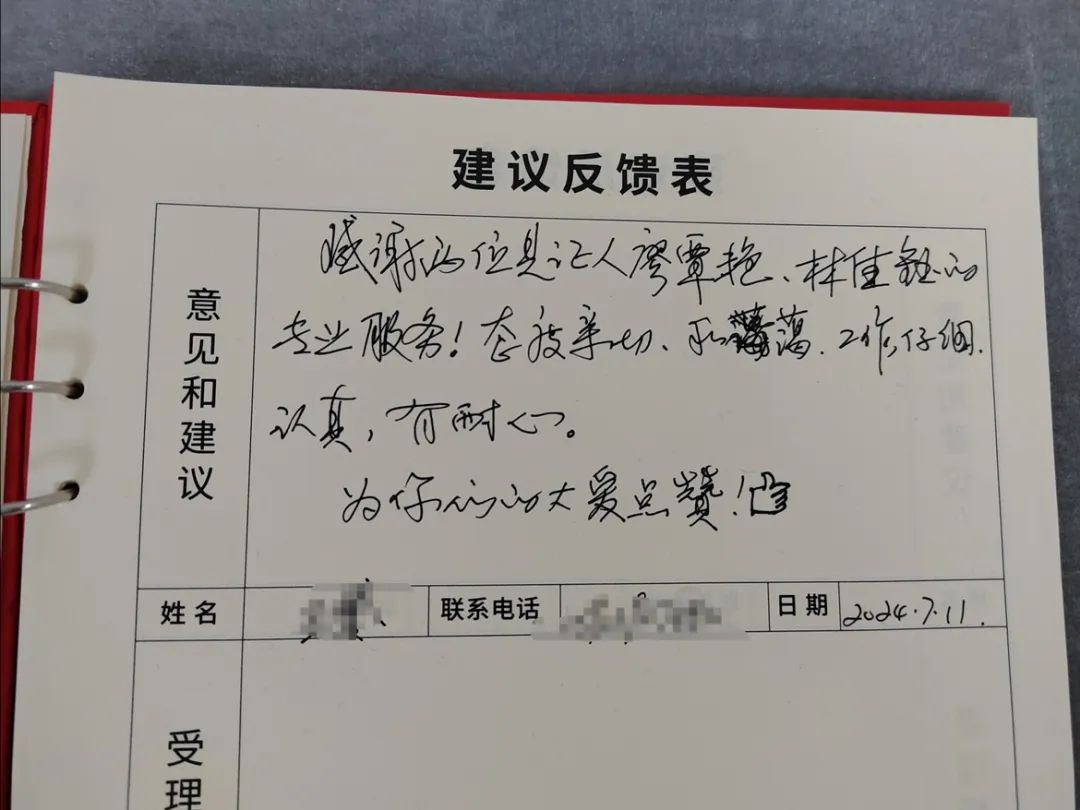 建议反馈表
意见和建议
感谢两位见证人廖覃艳、林佳钰的
专业服务！态度亲切、和蔼，工作仔细，
认真，有耐心。
为你们的大爱点赞！
姓名
联系电话
日期
2024.7.11.
受理